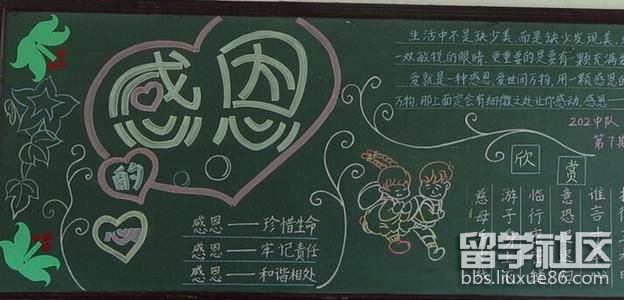 感恩
的
心
生活中不是缺少美,而是缺少发现美,
双敏锐的眼睛,更重要的是要有一颗充满
爱就是一种感恩,爱世间万物,用一颗感恩的
万物,那上面定会有细微之处让你感动,感恩——
202中队
第7期
欣赏
慈母
游子
临行
意恐
谁言
感恩——珍惜生命
感恩——牢记责任
感恩——和谐相处
留学社区
bbs.liuxue86.com